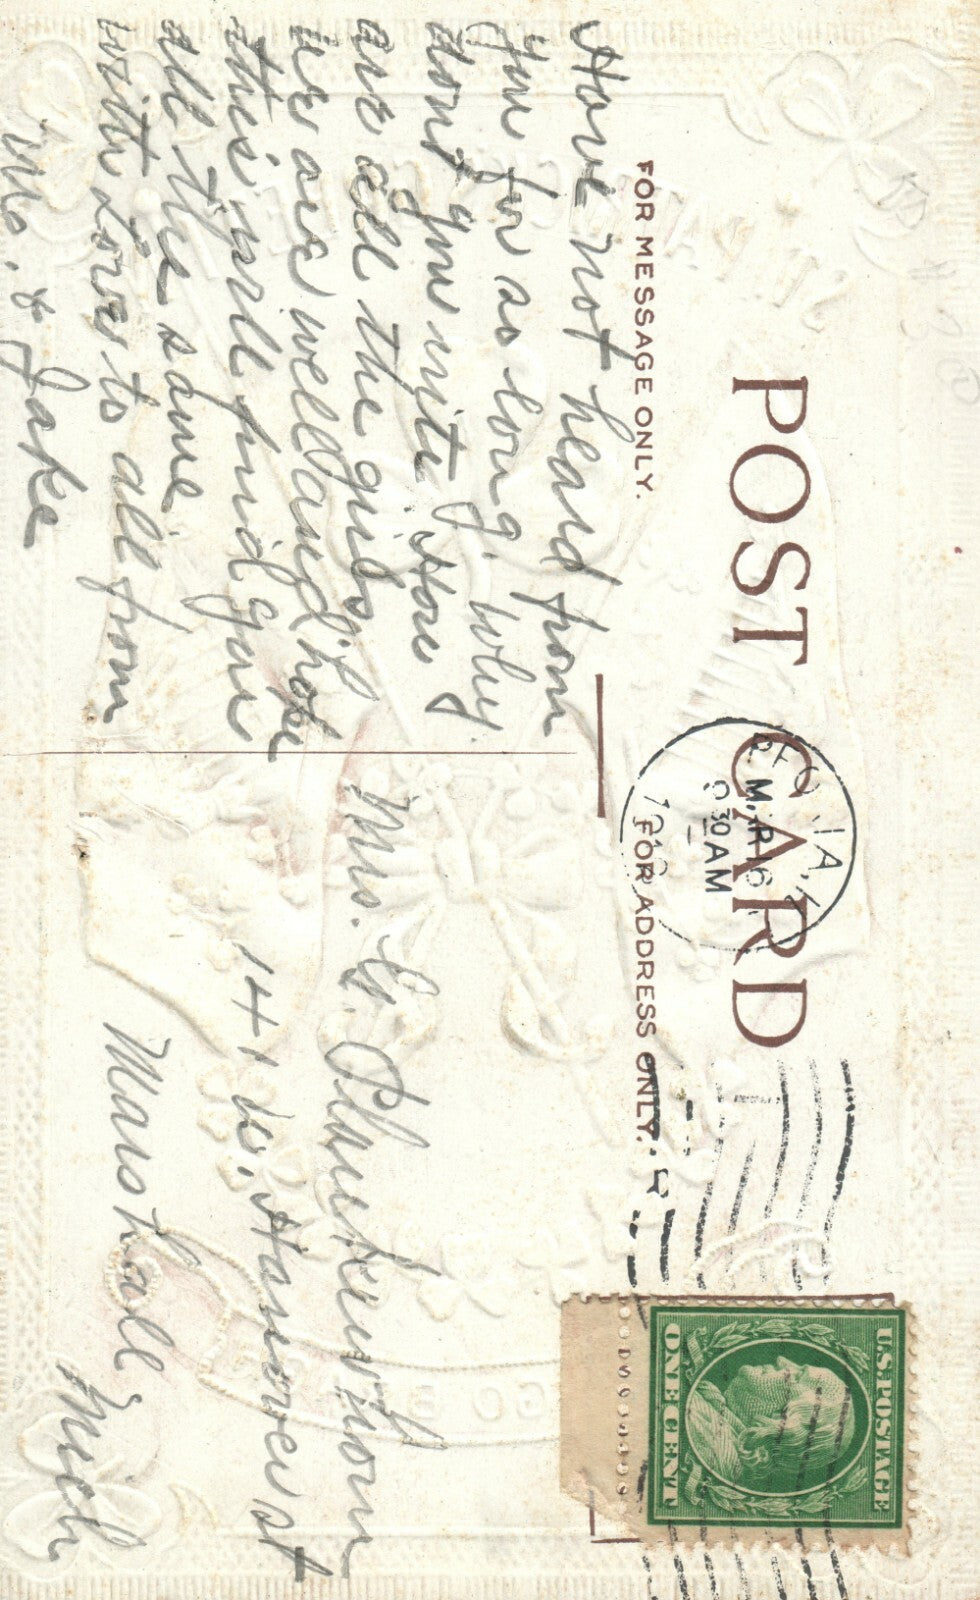 POST CARD
FOR MESSAGE ONLY.
FOR ADDRESS ONLY.
MAR 16
30 AM
U.S. POSTAGE
ONE CENT
Have not heard from
you for so long, why
dont you write. How
are all the girls
we are well and hope
this will find you
all the same
with love to all from
Mrs. & Jake
Mrs. G.
141 So. Hanover st
Marshall
Mich